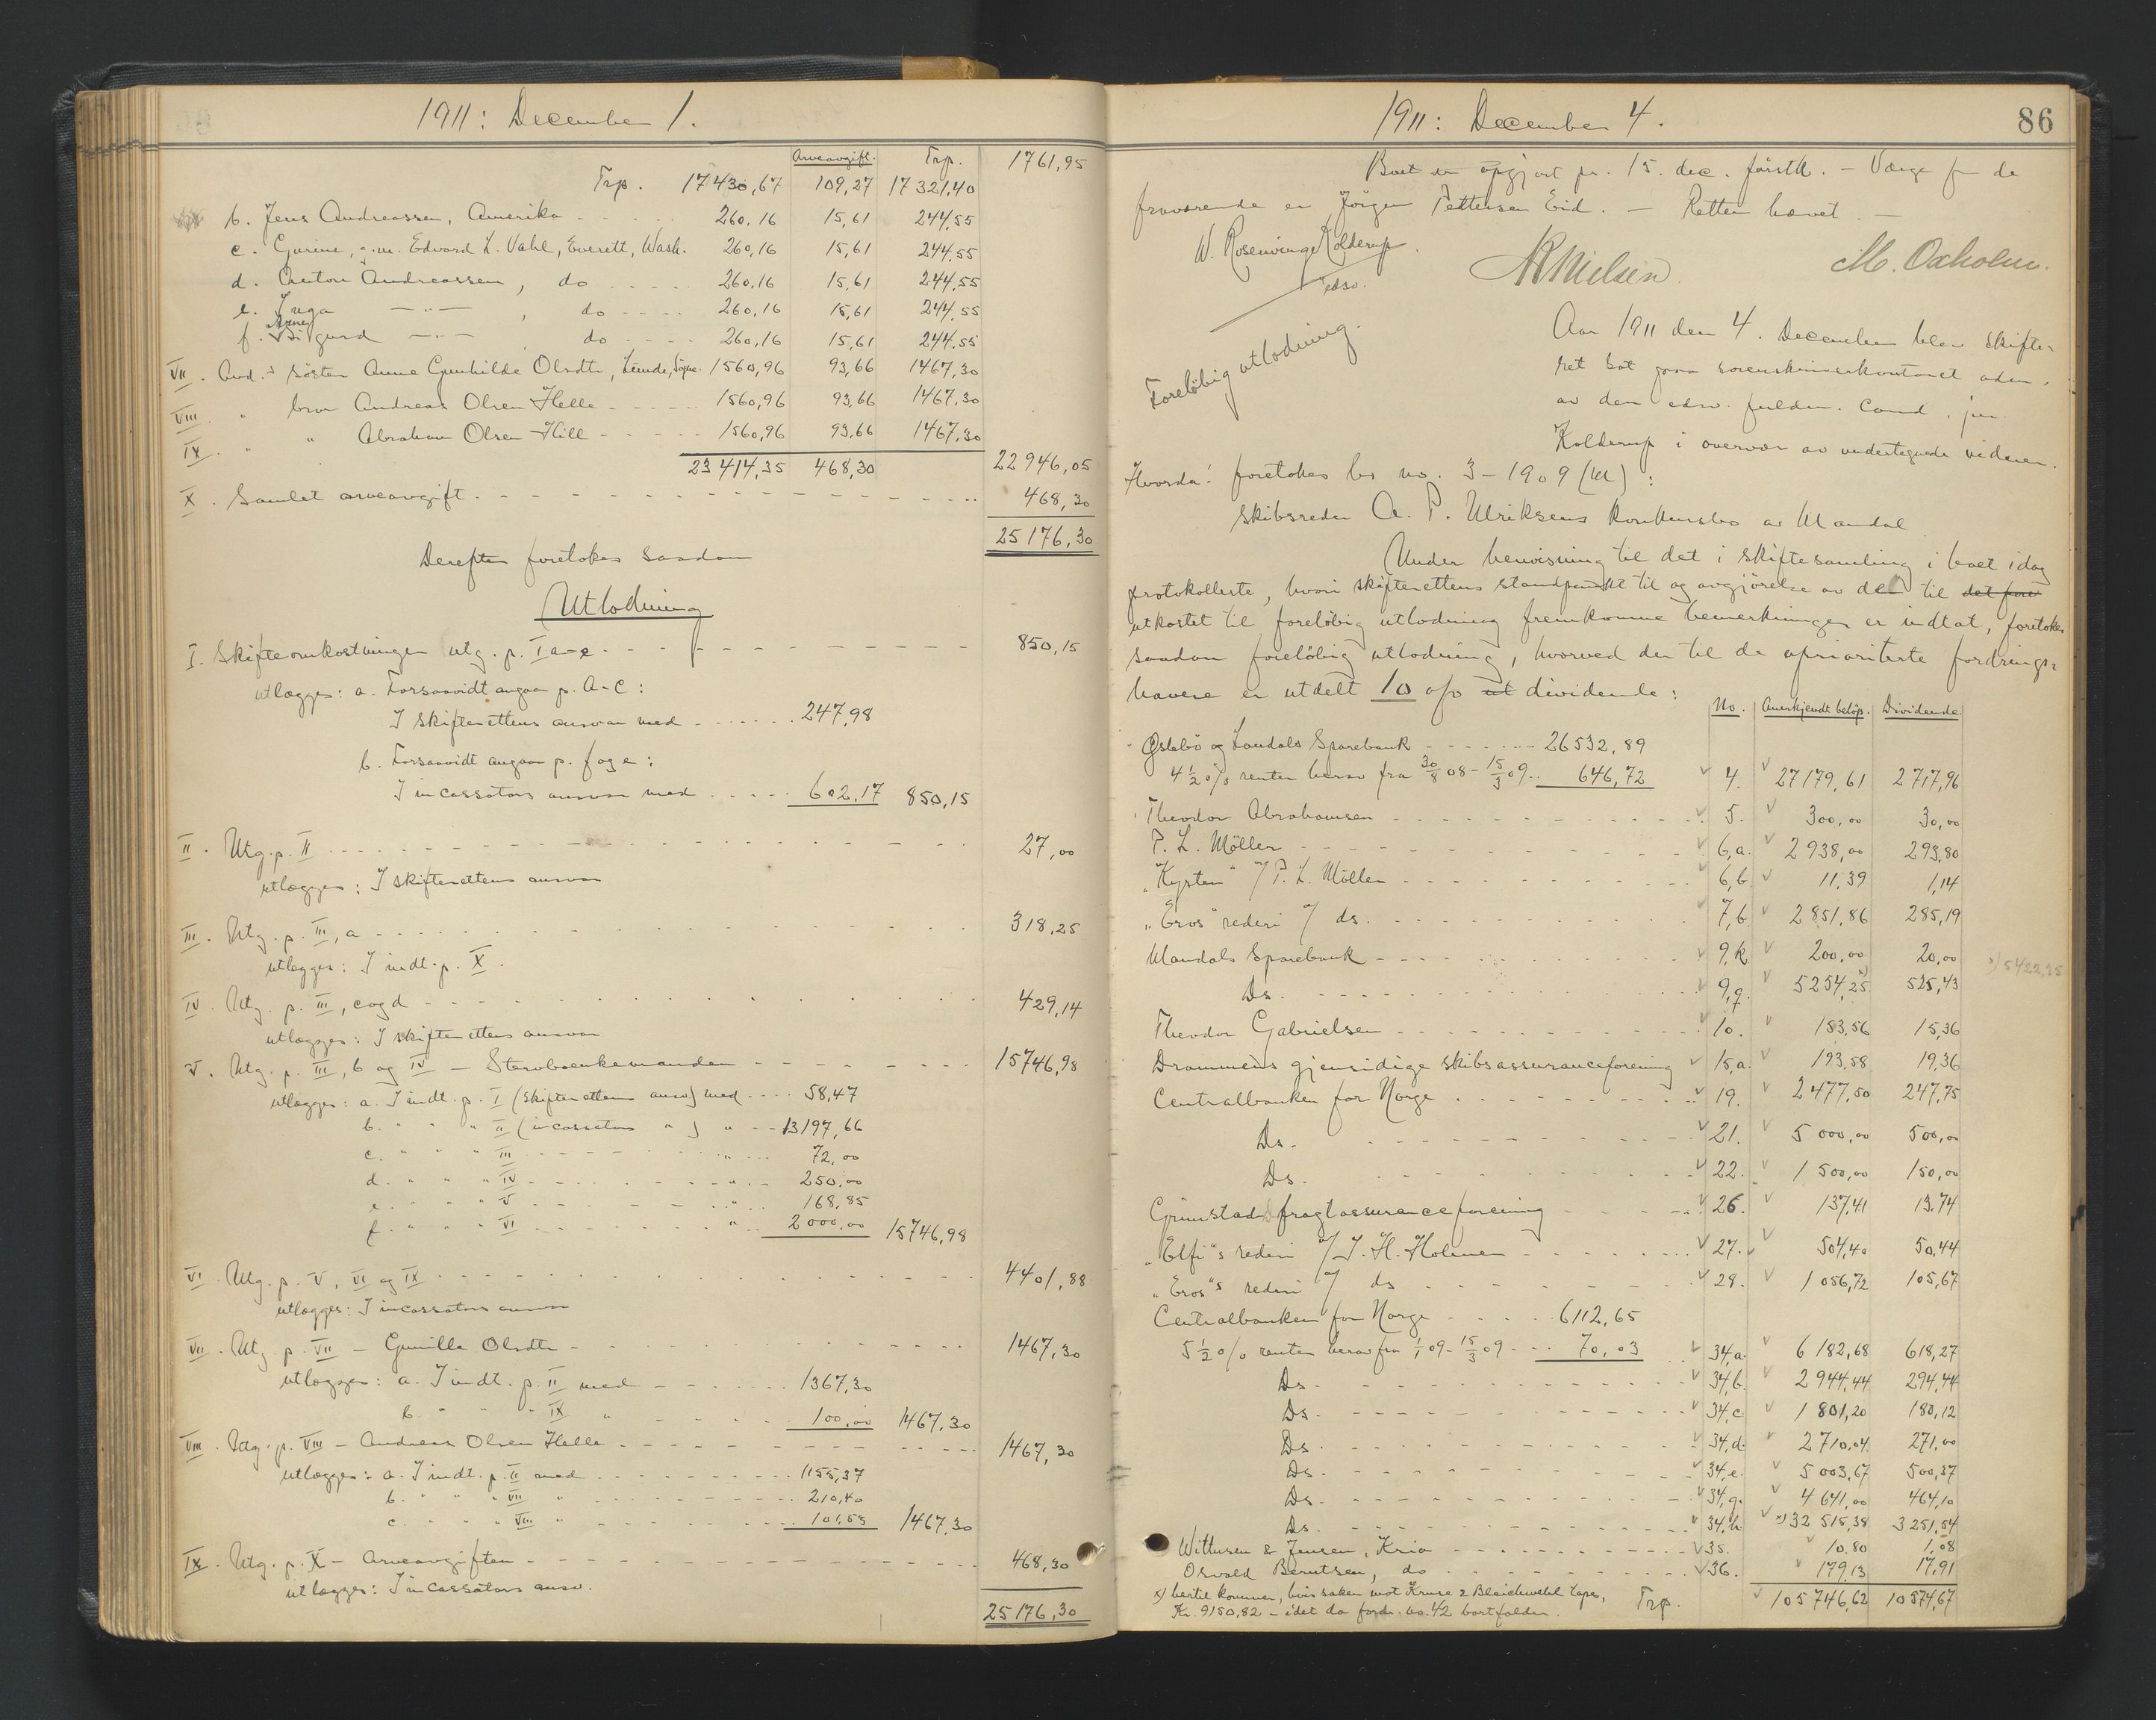 1911: December 1.
Arveavgift. Trp. 1761,95
Trp. 17430,67 109,27 17321,40
b. Jens Andreassen, Amerika - - - - 260,16 15,61 244,55
c. Gurine, g. m. Edvard L. Vahl, Everett, Wash. 260,16 15,61 244,55
d. Anton Andreassen, do - - - - 260,16 15,61 244,55
e. Inga —"— , do - - - - 260,16 15,61 244,55
f. Sigurd —"— do - - - - 260,16 15,61 244,55
VII. Avd.s søster Anne Gunhilde Olsdtr, Lunde, Søgne. 1560,96 93,66 1467,30
VIII. " bror Andreas Olsen Helle - - - - 1560,96 93,66 1467,30
IX. " " Abraham Olsen Hille - - - - 1560,96 93,66 1467,30
23414,35 468,30 22946,05
X. Samlet arveavgift - - - - 468,30
25176,30
Derefter foretokes saadan
Utlodning
I. Skifteomkostninger utg. p. I a-e - - - - 850,15
utlægges: a. Forsaavidt angaar p. A-C:
I skifterettens ansvar med - - - - 247,98
b. Forsaavidt angaar p. f og e:
I incassators ansvar med - - - - 602,17 850,15
II. Utg. p. II - - - - 27,00
utlægges: I skifterettens ansvar
III. Utg. p. III, a - - - - 318,25
utlægges: I indt. p. X.
IV. Utg. p. III, c og d - - - - 429,14
utlægges: I skifterettens ansvar
V. Utg. p. III, b og IV — Stervboenkemanden - - - - 15746,98
utlægges: a. I indt. p. I (skifterettens ansv) med - - - - 58,47
b. " " " II (incassators " ) " - - 13197,66
c. " " " III - - - - " - - 72,00
d. " " " IV - - - - " - - 250,00
e. " " " V - - - - " - - 168,85
f. " " " VI - - - - " - - 2000,00 15746,98
VI. Utg. p. V, VI og IX - - - - 4401,88
utlægges: I incassators ansvar
VII. Utg. p. VII — Gunille Olsdtr - - - - 1467,30
utlægges: a. I indt. p. II med - - - - 1367,30
b. " " " IX " - - - - 100,00 1467,30
VIII. Utg. p. VIII — Andreas Olsen Helle - - - - 1467,30
utlægges: a. I indt. p. II med - - - - 1155,37
b. " " " VII " - - - - 210,40
c. " " " VIII " - - - - 101,53 1467,30
IX. Utg. p. X — Arveavgiften - - - - 468,30
utlægges: I incassators ansv.
25176,30
1911: December 4. 86
Boet er opgjort pr. 15. dec. førstk. — Værge for de
fraværende er Jørgen Pettersen Eid. — Retten hævet. —
W. Rosenvinge Kolderup. edsv. M. Oxholm.
Nielsen
Foreløbig utlodning.
Aar 1911 den 4. December blev skifte-
ret sat paa sorenskriverkontoret adm.
av den edsv. fuldm. Cand. jur.
Kolderup i overvær av undertegnede vidner.
Hvorda: foretokes bo no. 3-1909 (M):
Skibsreder A. P. Ulriksens konkursbo av Mandal
Under henvisning til det i skiftesamling i boet idag
protokollerte, hvori skifterettens standpunkt til og avgjørelse av de til det fore
utkastet til foreløbig utlodning fremkomne bemerkninger er indtat, foretokes
saadan foreløbig utlodning, hvorved der til de uprioriterte fordrings-
havere er utdelt 10 o/o ut dividende:
No. Anerkjendt beløp. Dividende
Øslebø og Laudals Sparebank - - - - 26532,89
4 1/2 o/o renter herav fra 30/8 08 - 15/3 09 - - 646,72 4. 27179,61 2717,96
Theodor Abrahamsen - - - - 5. 300,00 30,00
P. L. Möller - - - - 6,a. 2938,00 293,80
"Kysten" v/ P. L. Möller - - - - 6,b. 11,39 1,14
"Eros" rederi v/ ds. - - - - 7,b 2851,86 285,19
Mandals Sparebank - - - - 9,k 200,00 20,00
Ds. - - - - 9,q. 5254,25 x) 525,43 x) 5422,25
Theodor Gabrielsen - - - - 10. 153,56 15,36
Drammens gjensidige skibsassuranceforening 15,a. 193,58 19,36
Centralbanken for Norge - - - - 19. 2477,50 247,75
Ds. - - - - 21. 5000,00 500,00
Ds. - - - - 22. 1500,00 150,00
Grimstad fragtassuranceforening - - - - 26. 137,41 13,74
"Elfi"s rederi v/ J. H. Holmen - - - - 27. 504,40 50,44
"Eros"s rederi v/ ds - - - - 28. 1056,72 105,67
Centralbanken for Norge - - - - 6112,65
5 1/2 o/o renter herav fra 1/1 09 - 15/3 09 - - 70,03 34,a. 6182,68 618,27
Ds. - - - - 34,b. 2944,44 294,44
Ds. - - - - 34,c 1801,20 180,12
Ds. - - - - 34,d. 2710,04 271,00
Ds. - - - - 34,e. 5003,67 500,37
Ds. - - - - 34,g. 4641,00 464,10
Ds. - - - - 34,h x) 32515,38 3251,54
Wittusen & Jensen, Kria - - - - 35. 10,80 1,08
Osvald Berntsen, do - - - - 36. 179,13 17,91
x) hertil kommer, hvis saken mot Kruse & Bleichwehl tapes,
Kr. 9150,82 — idet da fordr. no. 42 bortfalder. Trp. 105746,62 10574,67